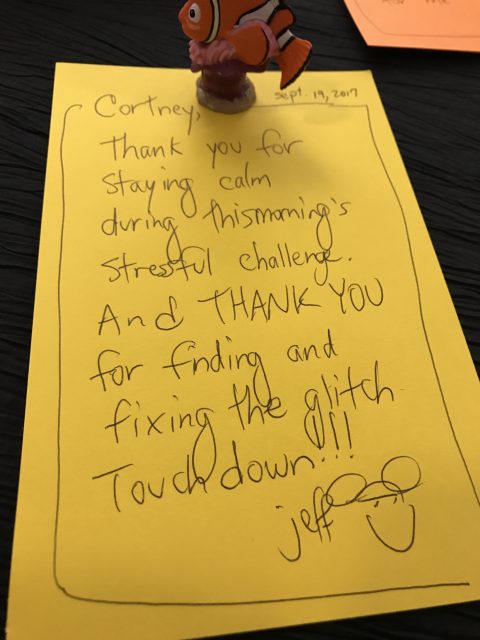 sept. 19, 2017
Cortney,
Thank you for
staying calm
during thismorning's
stressful challenge.
And THANK YOU
for finding and
fixing the glitch
Touchdown!!!
jeff